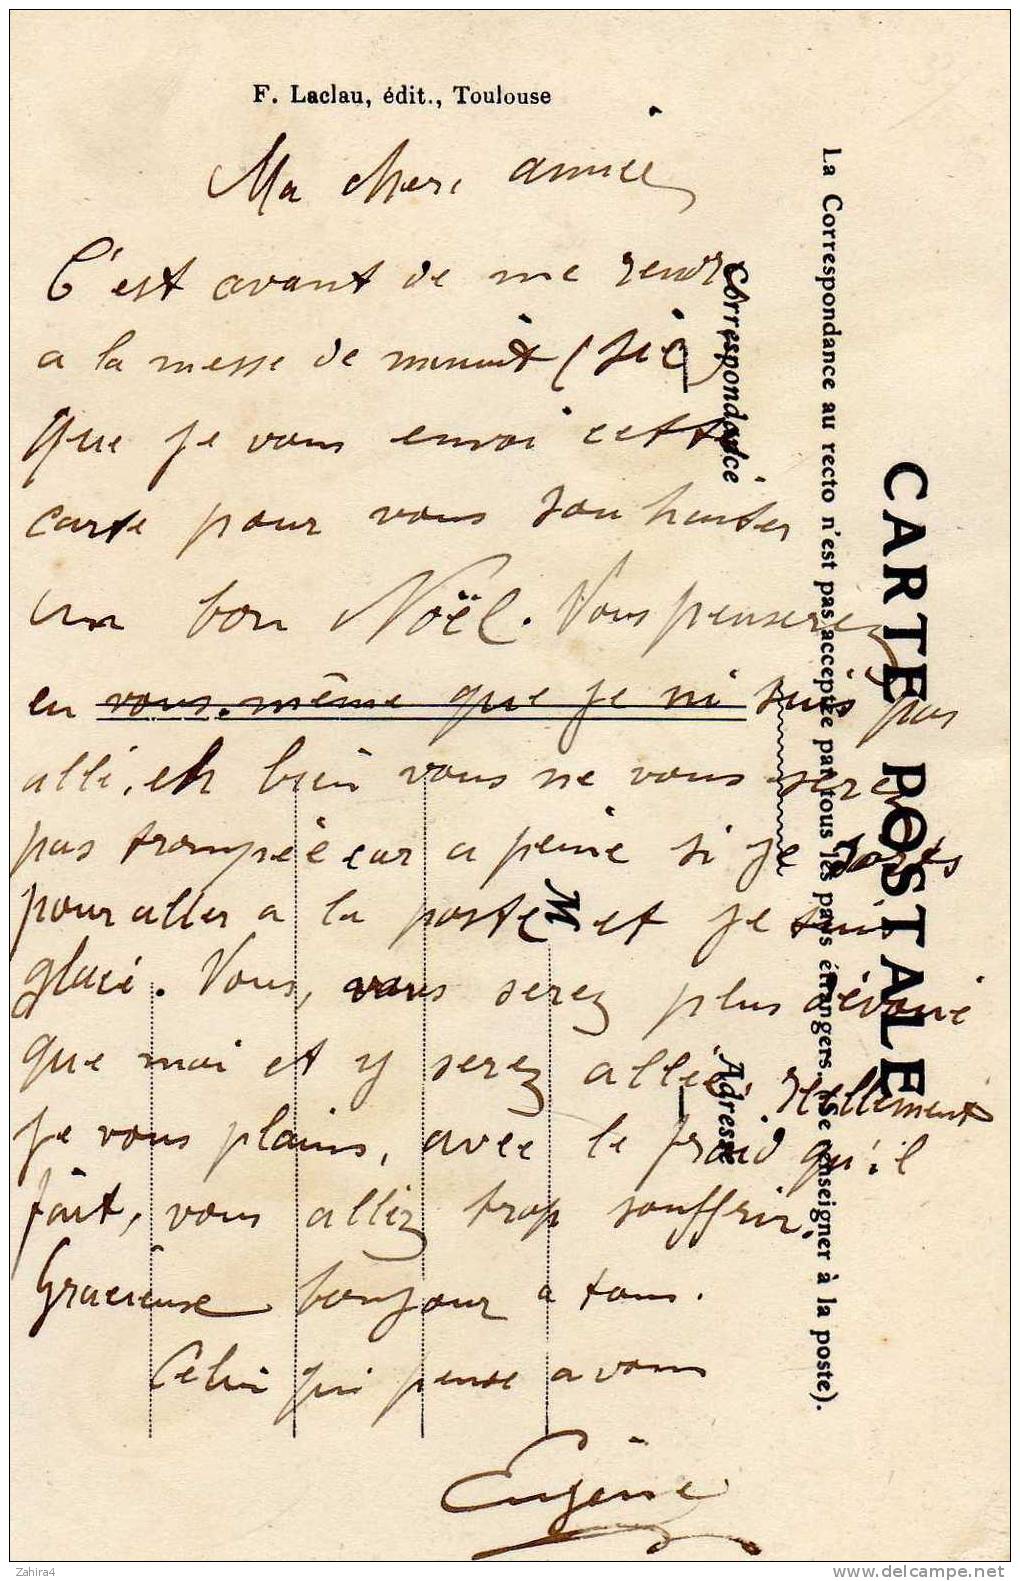 F. Laclau, édit., Toulouse
Ma chere amie,
C'est avant de me rendre
a la messe de minuit (sic)
que je vous envoi cette
carte pour vous souhaiter
un bon Noël. Vous penserez
en vous-même que je ni suis pas
allé, eh bien vous ne vous serez
pas trompée car a peine si je sors
pour aller a la poste et je suis
glacé. Vous, vous serez plus dévoué
que moi et y serez allée. Réellement
je vous plains, avec le froid qu'il
fait, vous allez trop souffrir.
Gracieuse bonjour a tous.
Celui qui pense a vous
Eugène
Correspondance
Adresse
M
La Correspondance au recto n'est pas acceptée par tous les pays étrangers. (Se renseigner à la poste).
CARTE POSTALE
Zahira4
delcampe.net